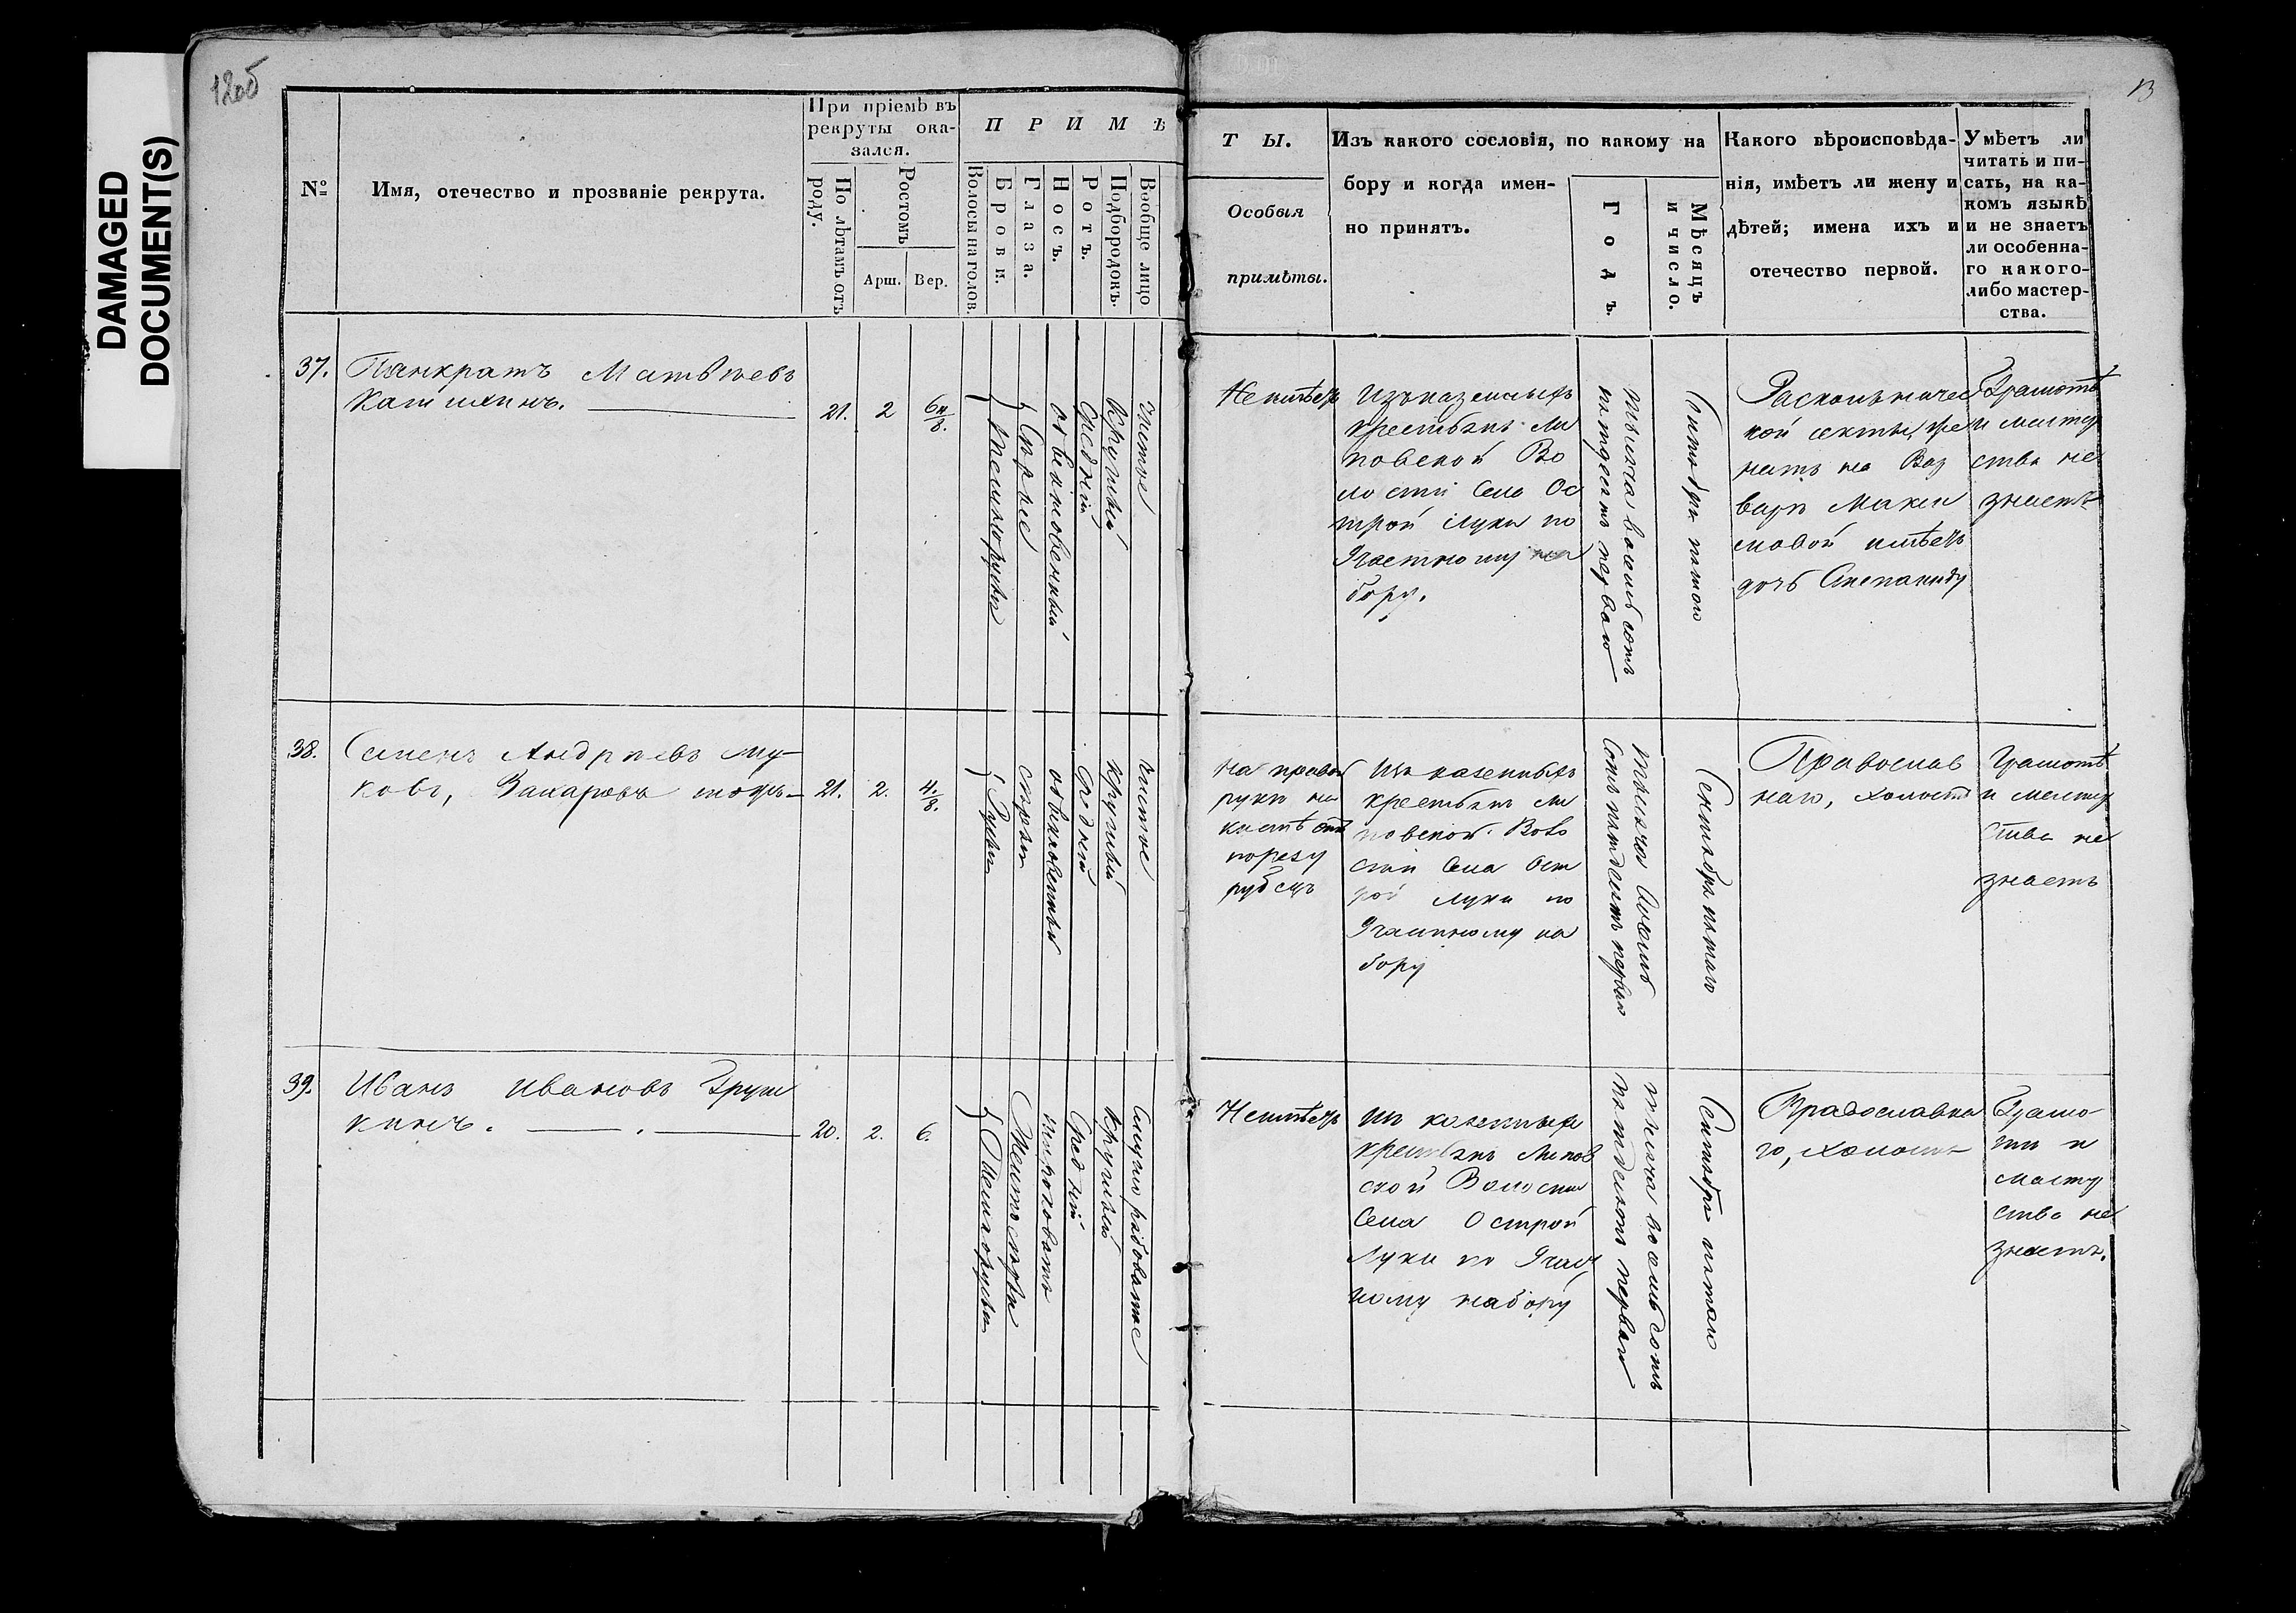 DAMAGED
DOCUMENT(S)
12об
13
№
Имя, отечество и прозваніе рекрута.
При пріемѣ въ
рекруты ока-
зался.
По лѣтамъ отъ
роду.
Ростомъ
Арш.
Вер.
ПРИМѢ
Волосы на голов.
Брови.
Глаза.
Носъ.
Ротъ.
Подбородокъ.
Вообще лицо
ТЫ.
Особыя
примѣты.
Изъ какого сословія, по какому на
бору и когда имен-
но принятъ.
Годъ.
Мѣсяцъ
и число.
Какого вѣроисповѣда-
нія, имѣетъ ли жену и
дѣтей; имена ихъ и
отечество первой.
Умѣетъ ли
читать и пи-
сать, на ка-
комъ языкѣ
и не знаетъ
ли особенна-
го какого-
либо мастер-
ства.
37.
Панкратъ Матвѣевъ
21.
2
6
Темнорусы
Сѣрые
обыкновенный
Средній
Круглый
чистое
Неимѣетъ
Изъ казенныхъ
крестьянъ Ли
повской Во
лости Села Ос
трой Луки по
Участному на
бору.
тысяча восемьсотъ
пятдесятъ перваго
Сентября пятаго
Раскольничес
кой секты, же
натъ на Вар
варѣ Макси
мовой имѣетъ
дочь Степаниду
Грамотѣ
и мастер
ства не
знаетъ
38.
Семенъ Андреевъ Жу-
ковъ, Захаровъ тожъ
21.
2.
4/8.
Русы
сѣрые
обыкновенный
средній
круглый
чистое
на правой
руки на
кистѣ отъ
порезу
рубецъ
Изъ казенныхъ
крестьянъ Ли
повской Воло
сти Села Ост
рой Луки по
Участному на
бору
тысяча восемь
сотъ пятдесятъ перваго
Сентября пятаго
Православ
наго, холостъ
Грамотѣ
и мастер
ства не
знаетъ
39.
Иванъ Ивановъ
20.
2.
6.
Темнорусы
Желтосѣрые
широковатъ
средній
Круглый
Смугло рябоватое
Неимѣетъ
Изъ казенныхъ
крестьянъ Липов
ской Волости
Села Острой
Луки по Участ
ному набору
тысяча восемьсотъ
пятдесятъ перваго
Сентября пятаго
Православна
го, холостъ
Грамо
ти и
мастер
ства не
знаетъ.